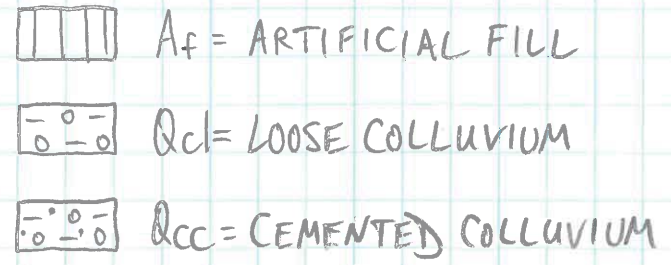 Af = ARTIFICIAL FILL
Qcl = LOOSE COLLUVIUM
Qcc = CEMENTED COLLUVIUM